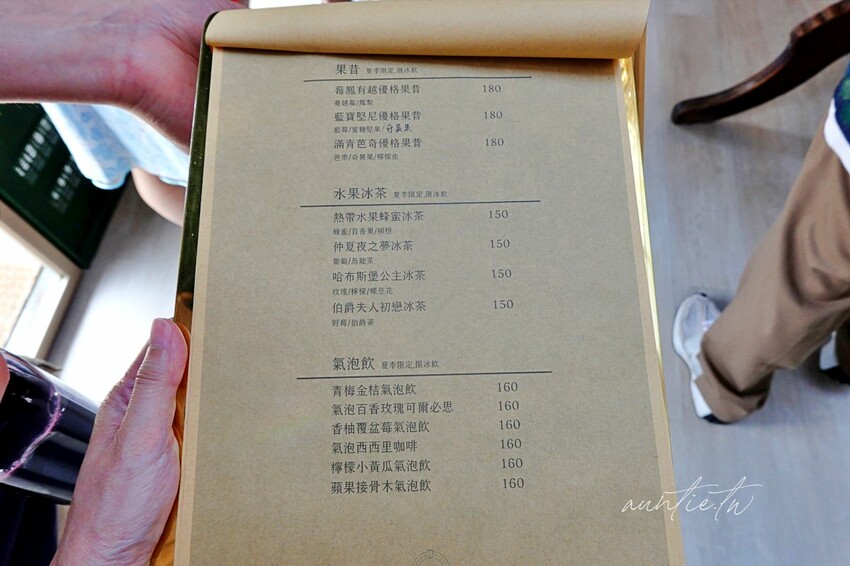 果昔 夏季限定,限冰飲
莓鳳有越優格果昔 180
蔓越莓/鳳梨
藍寶堅尼優格果昔 180
藍莓/蜜糖堅果/奇亞籽
滿青芭奇優格果昔 180
芭樂/奇異果/檸檬皮
水果冰茶 夏季限定,限冰飲
熱帶水果蜂蜜冰茶 150
蜂蜜/百香果/柳橙
仲夏夜之夢冰茶 150
葡萄/烏龍茶
哈布斯堡公主冰茶 150
玫瑰/檸檬/蝶豆花
伯爵夫人初戀冰茶 150
野莓/伯爵茶
氣泡飲 夏季限定,限冰飲
青梅金桔氣泡飲 160
氣泡百香玫瑰可爾必思 160
香柚覆盆莓氣泡飲 160
氣泡西西里咖啡 160
檸檬小黃瓜氣泡飲 160
蘋果接骨木氣泡飲 160
auntie.tw